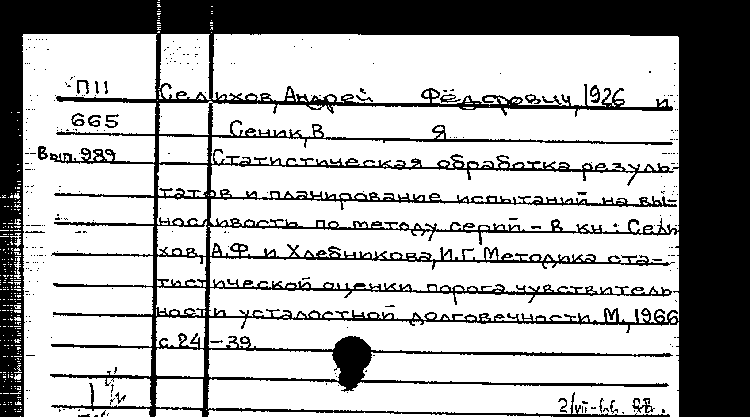 П11 Селихов, Андрей Фёдорович, 1926 и
665 Сеник, В Я
Вып. 989 Статистическая обработка резуль-
татов и планирование испытаний на вы-
носливость по методу серий. - В кн.: Сели
хов, А.Ф. и Хлебникова, И.Г. Методика ста-
тистической оценки порога чувствитель-
ности усталостной долговечности. М., 1966
с. 24-39.
2/VII-66